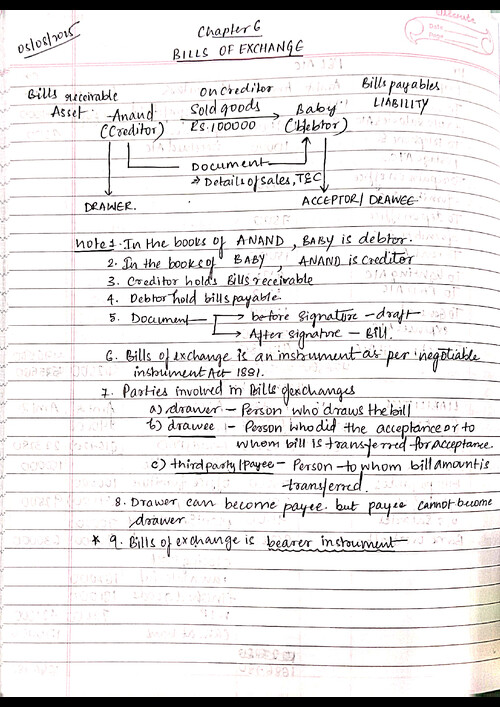 05/05/2025
Chapter 6
BILLS OF EXCHANGE
Date
Page
Bills receivable
Asset
On Creditor
Bills payables
LIABILITY
Anand
(Creditor)
Sold goods
Rs.100000
Baby
(Debtor)
Document
⇒ Details of sales, T&C
DRAWER.
ACCEPTOR/ DRAWEE
note 1. In the books of ANAND, BABY is debtor.
2. In the books of BABY, ANAND is creditor
3. Creditor holds Bills receivable
4. Debtor hold bills payable.
5. Document → before signature - draft
→ After signature - Bill.
6. Bills of exchange is an instrument as per negotiable
instrument Act 1881.
7. Parties involved in Bills of exchanges
a) drawer - Person who draws the bill
b) drawee :- Person who did the acceptance or to
whom bill is transferred for acceptance.
c) third party/payee - Person to whom bill amount is
transferred.
8. Drawer can become payee. but payee cannot become
drawer
* 9. Bills of exchange is bearer instrument